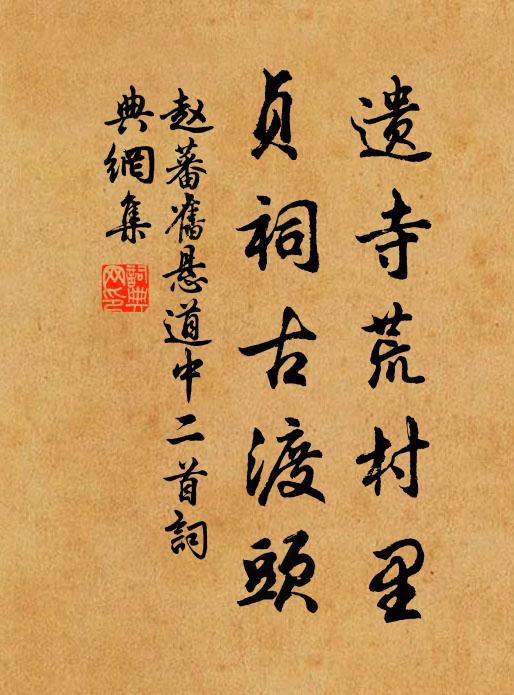 遗寺荒村里
贞祠古渡头
赵蕃舊悬道中二首詞
典網集
詞典網印